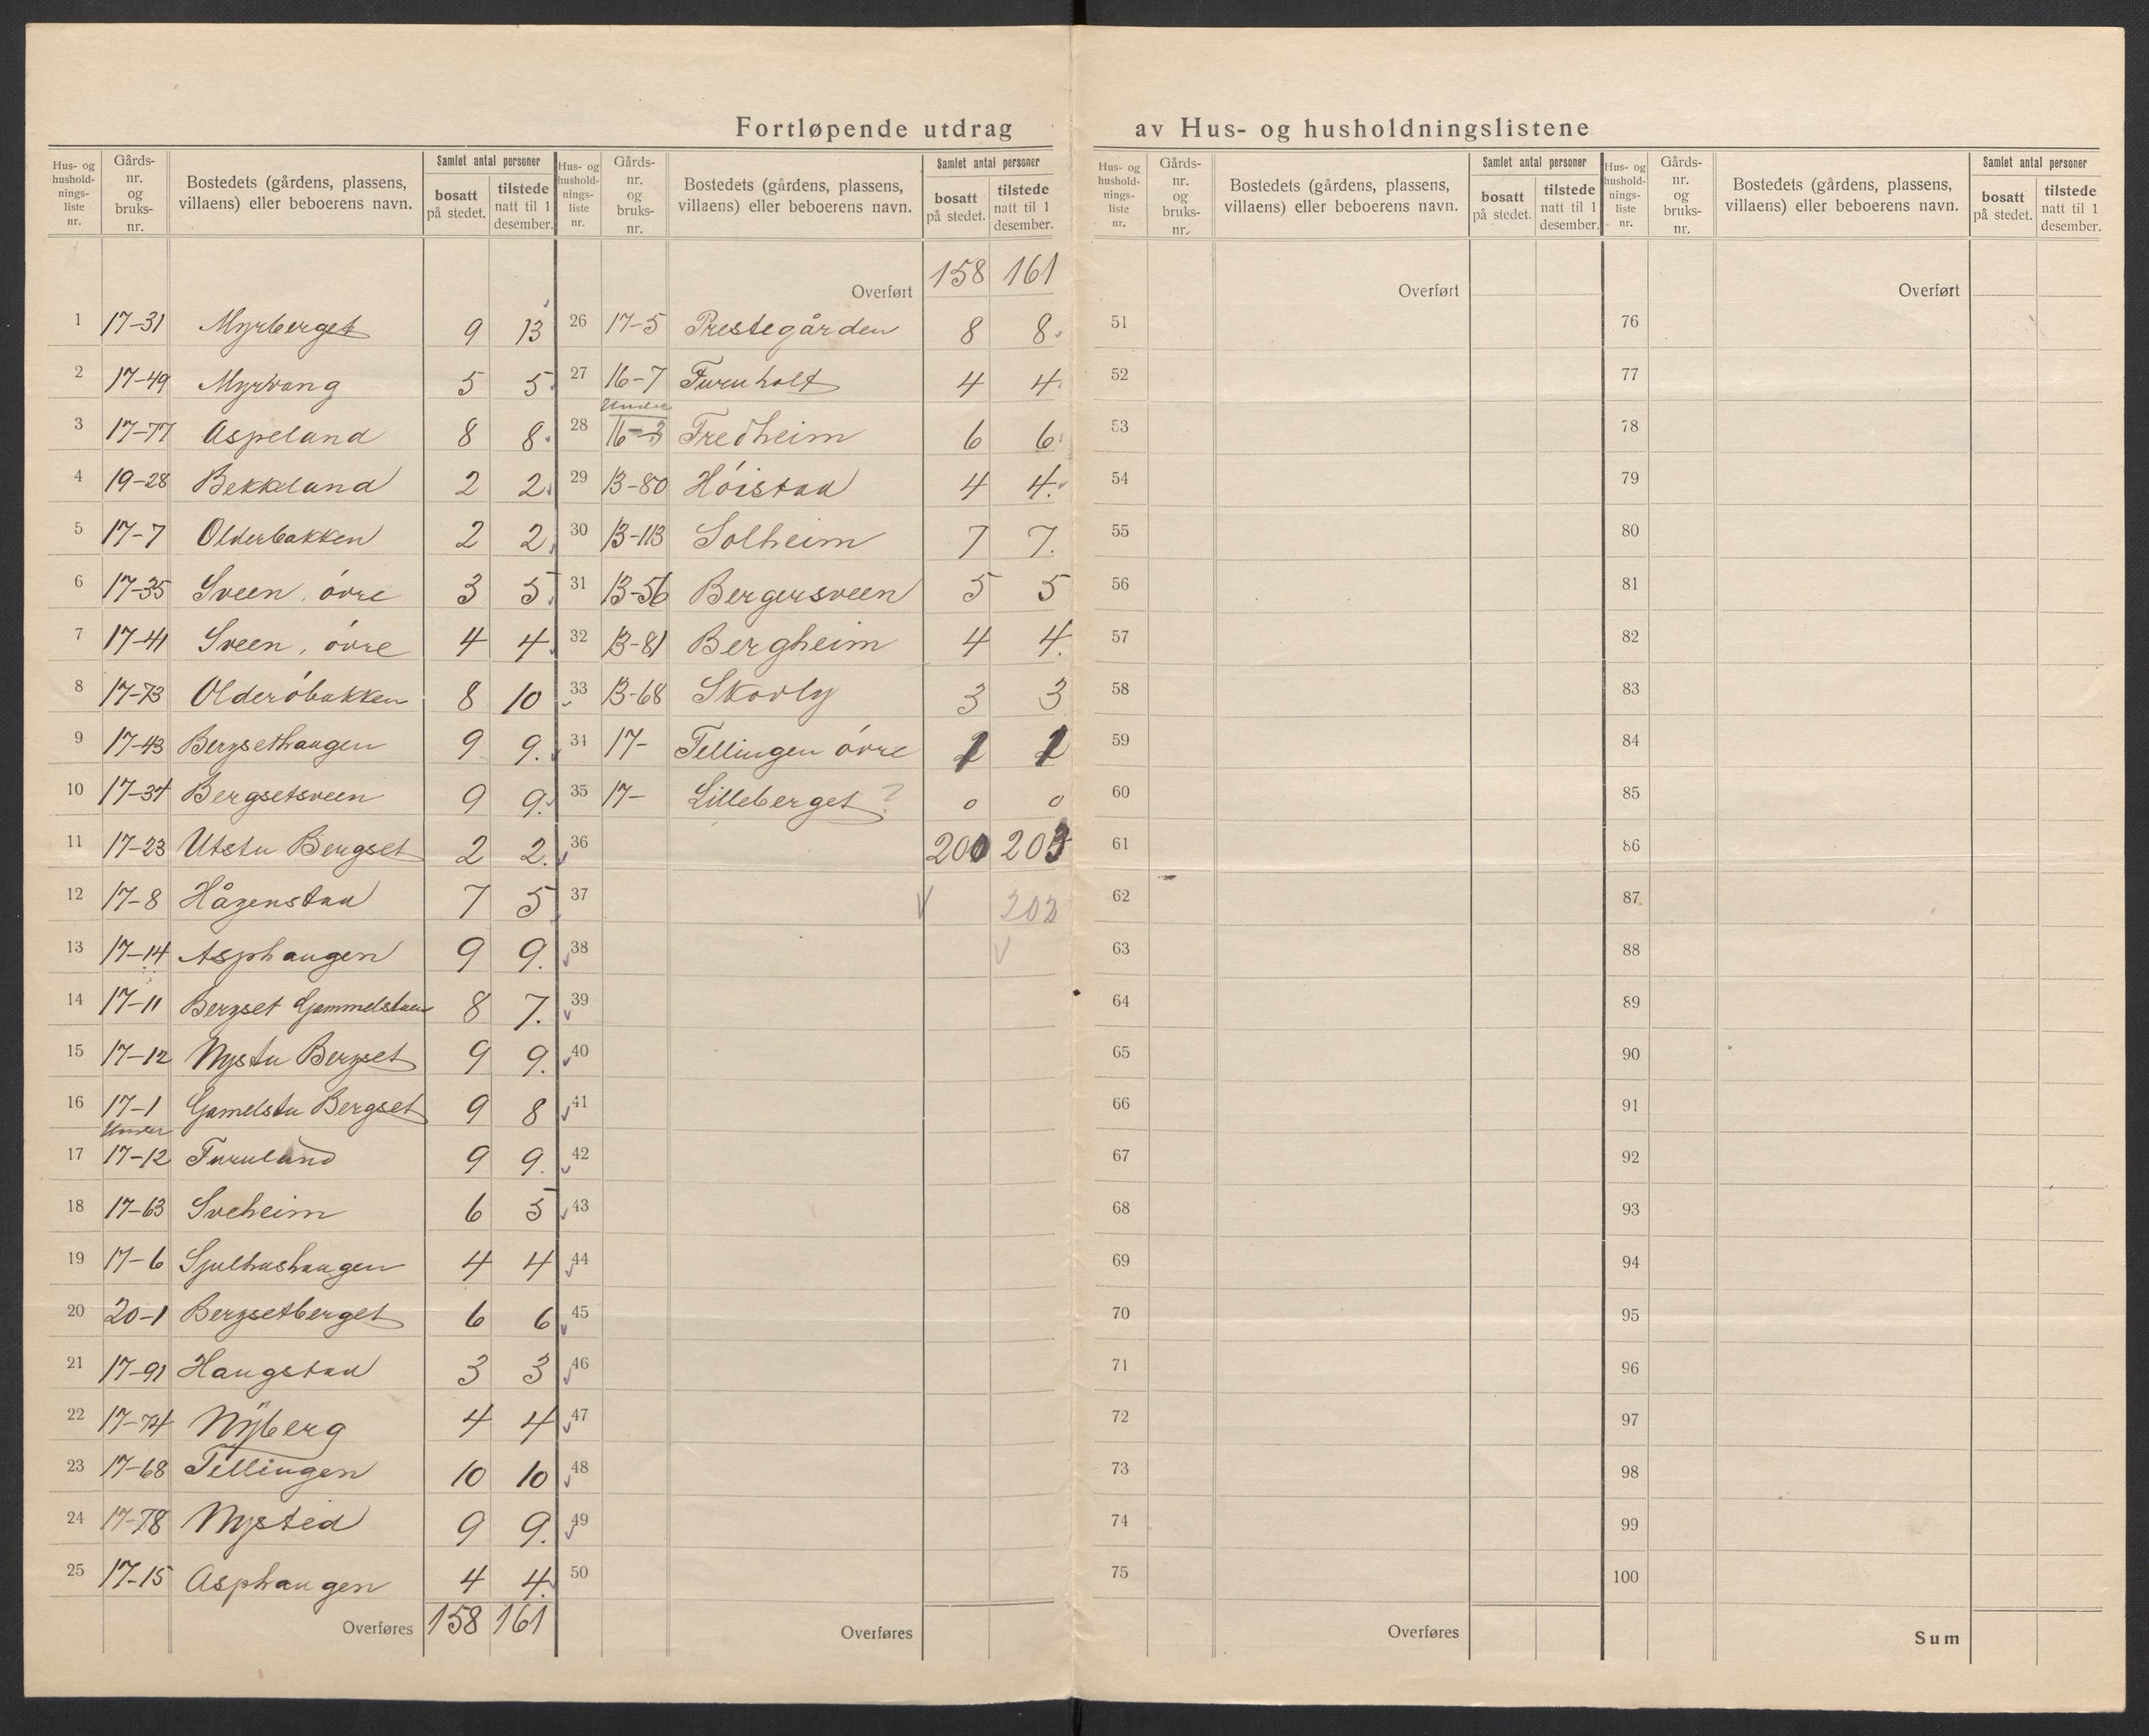 Fortløpende utdrag av Hus- og husholdningslistene
Hus- og husholdningsliste nr. | Gårds-nr. og bruks-nr. | Bostedets (gårdens, plassens, villaens) eller beboerens navn. | Samlet antal personer | bosatt på stedet. | tilstede natt til 1 desember.
1 17-31 Myrberget 9 13
2 17-49 Myrvang 5 5
3 17-77 Aspeland 8 8
4 19-28 Bekkeland 2 2
5 17-7 Olderbakken 2 2
6 17-35 Sveen, óvre 3 5
7 17-41 Sveen, óvre 4 4
8 17-73 Olderóbakken 8 10
9 17-43 Bergsethaugen 9 9.
10 17-37 Bergsetsveen 9 9.
11 17-23 Utstu Bergset 2 2.
12 17-8 Hågenstad 7 5
13 17-14 Asphaugen 9 9.
14 17-11 Bergset Gammelstuen 8 7.
15 17-12 Nystu Bergset 9 9.
16 17-1 Gamelstu Bergset 9 8
17 Under 17-12 Furuland 9 9.
18 17-63 Sveheim 6 5
19 17-6 Sjulhushaugen 4 4
20 20-1 Bergsetberget 6 6
21 17-91 Haugstad 3 3
22 17-74 Nÿberg 4 4
23 17-68 Tellingen 10 10
24 17-78 Nysted 9 9.
25 17-15 Asphaugen 4 4.
Overføres 158 161
Hus- og husholdningsliste nr. | Gårds-nr. og bruks-nr. | Bostedets (gårdens, plassens, villaens) eller beboerens navn. | Samlet antal personer | bosatt på stedet. | tilstede natt til 1 desember.
Overført 158 161
26 17-5 Prestegården 8 8.
27 16-7 Furuholt 4 4.
28 Under 16-3 Fredheim 6 6
29 13-80 Hóistad 4 4.
30 13-113 Solheim 7 7.
31 13-56 Bergersveen 5 5
32 13-81 Bergheim 4 4.
33 13-68 Skovly 3 3
34 17- Tellingen óvre 1 1
35 17- Lilleberget ? 0 0
36 200 203
37 202
38
39
40
41
42
43
44
45
46
47
48
49
50
Overføres
Hus- og husholdningsliste nr. | Gårds-nr. og bruks-nr. | Bostedets (gårdens, plassens, villaens) eller beboerens navn. | Samlet antal personer | bosatt på stedet. | tilstede natt til 1 desember.
Overført
51
52
53
54
55
56
57
58
59
60
61
62
63
64
65
66
67
68
69
70
71
72
73
74
75
Overføres
Hus- og husholdningsliste nr. | Gårds-nr. og bruks-nr. | Bostedets (gårdens, plassens, villaens) eller beboerens navn. | Samlet antal personer | bosatt på stedet. | tilstede natt til 1 desember.
Overført
76
77
78
79
80
81
82
83
84
85
86
87
88
89
90
91
92
93
94
95
96
97
98
99
100
Sum